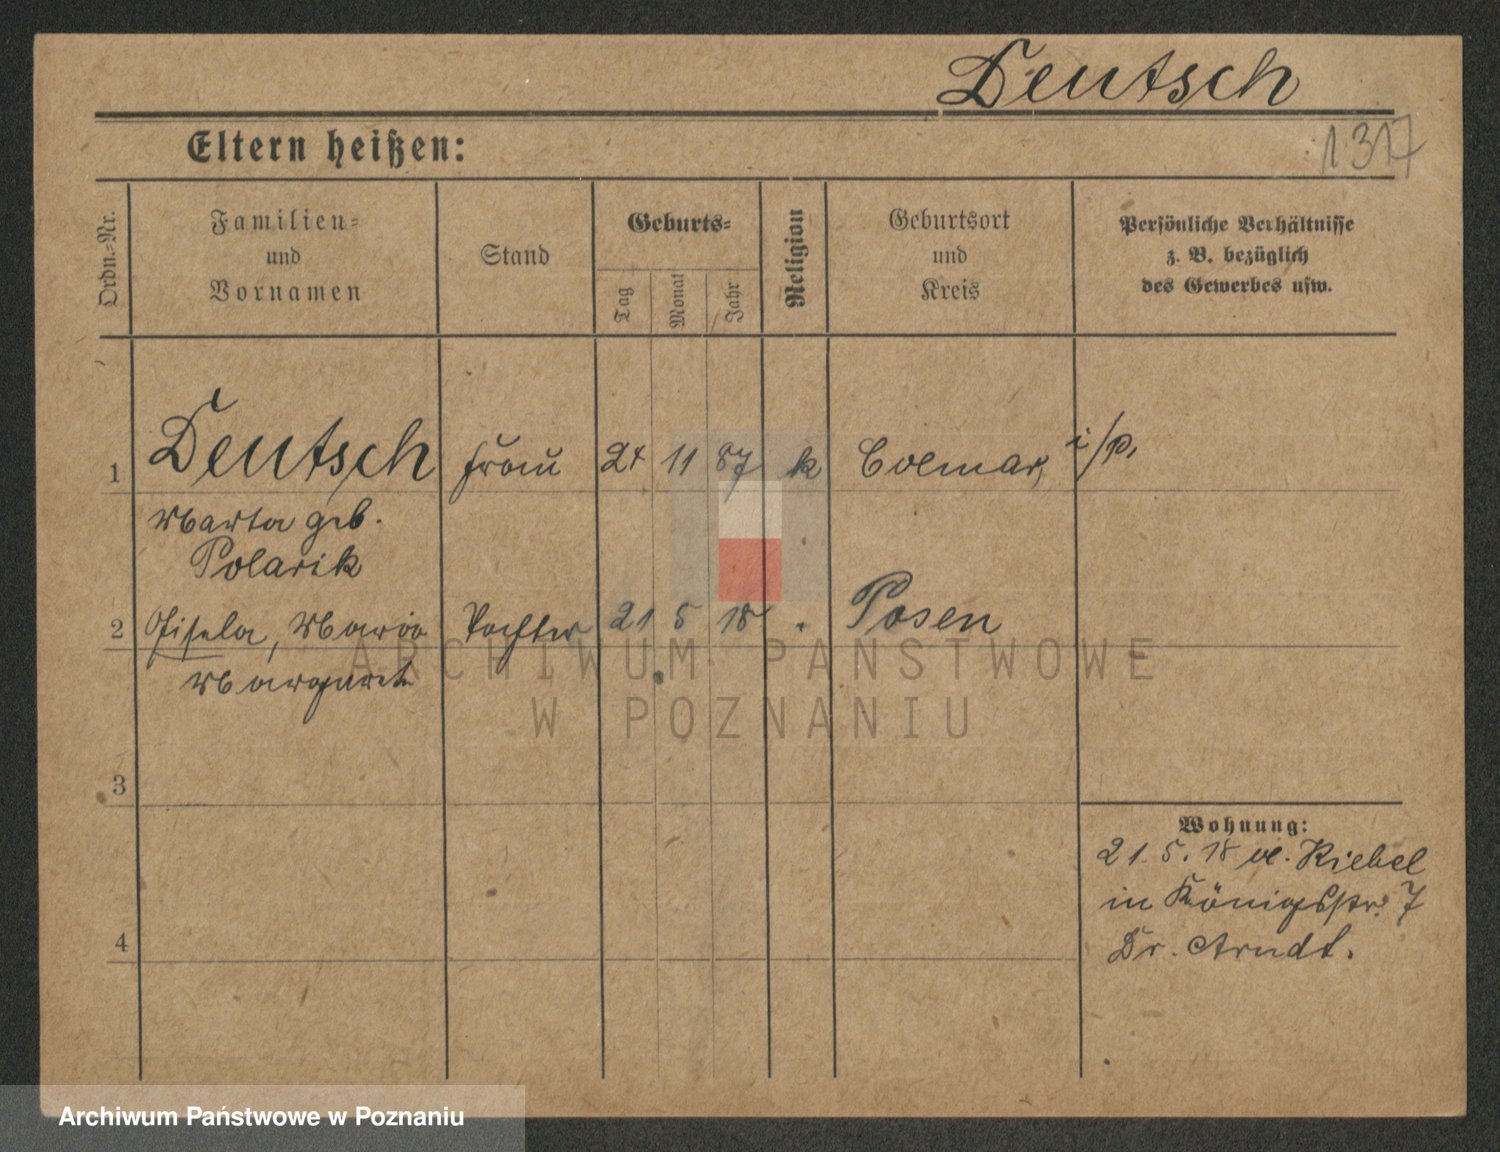 Deutsch
Eltern heißen:
1317
Ordn.-Nr.
Familien-
und
Vornamen
Stand
Geburts-
Tag
Monat
Jahr
Religion
Geburtsort
und
Kreis
Persönliche Verhältnisse
z. B. bezüglich
des Gewerbes usw.
1 Deutsch Frau 24 11 87 k Colmar, i/P.
Marta geb.
Polarik
2 Gisela, Maria Tochter 21 5 18 . Posen
Margarete
ARCHIWUM PAŃSTWOWE
W POZNANIU
3
Wohnung:
21. 5. 18 v. Kiebel
in Königsstr. 7
Dr. Arndt.
4
Archiwum Państwowe w Poznaniu